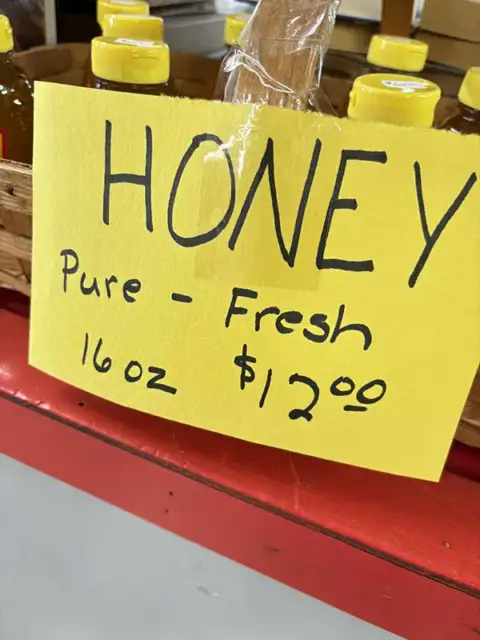 HONEY
Pure - Fresh
16 oz $12.00